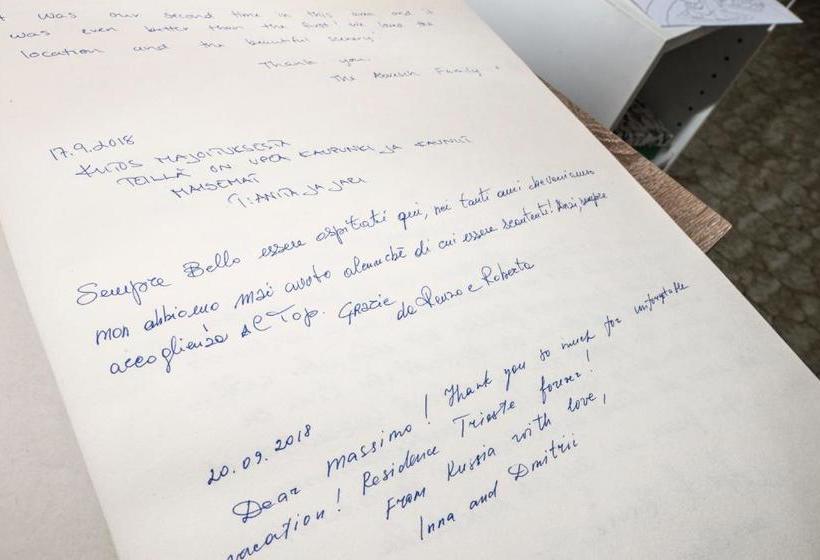 t was our second time in this area and it
was even better than the first! We love the
location and the beautiful scenery!
Thank you,
The Family.
17.9.2018
KIITOS MAJOITUKSESTA
TEILLÄ ON UPEA KAUPUNKI JA KAUNIIT
MAISEMAT
T: ANITA JA JARI
Sempre Bello essere ospitati qui, nei tanti anni che veniamo
non abbiamo mai avuto alcunché di cui essere scontenti! Anzi, sempre
accoglienza al Top. Grazie
da Renzo e Roberta
20.09.2018
Dear Massimo! Thank you so much for unforgetable
vacation! Residence Trieste forever!
From Russia with love,
Inna and Dmitrii